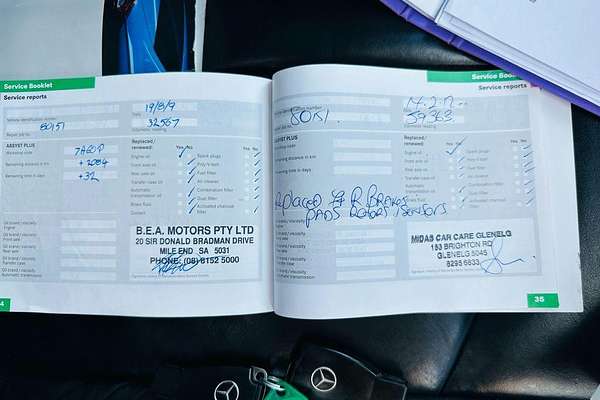 Service Booklet
Service reports
Vehicle identification number
19/8/9
Date
80151
32567
Repair job no.
Odometer reading
ASSYST PLUS
Workshop code
Remaining distance in km
+2084
Remaining time in days
+32
Replaced/ renewed: Yes No Yes No
Engine oil
Spark plugs
Front axle oil
Poly-V-belt
Rear axle oil
Fuel filter
Transfer case oil
Air cleaner
Automatic transmission oil
Combination filter
Dust filter
Brake fluid
Activated charcoal filter
Coolant
Oil brand / viscosity
Engine
Oil brand / viscosity
Front axle
Oil brand / viscosity
Rear axle
Oil brand / viscosity
Transfer case
Oil brand / viscosity
Automatic transmission
B.E.A. MOTORS PTY LTD
20 SIR DONALD BRADMAN DRIVE
MILE END SA 5031
PHONE: (08) 8152 5000
4
Service reports
80K1.
59363
Odometer reading
ASSYST PLUS
Workshop code
Remaining distance in km
Remaining time in days
Replaced/ renewed: Yes No Yes No
Engine oil
Spark plugs
Front axle oil
Poly-V-belt
Rear axle oil
Fuel filter
Transfer case oil
Air cleaner
Automatic transmission oil
Combination filter
Dust filter
Brake fluid
Activated charcoal filter
Coolant
Replaced F & R BRAKES
PADS ROTORS / SENSORS
MIDAS CAR CARE GLENELG
153 BRIGHTON RD
GLENELG 5045
8295 6833
35